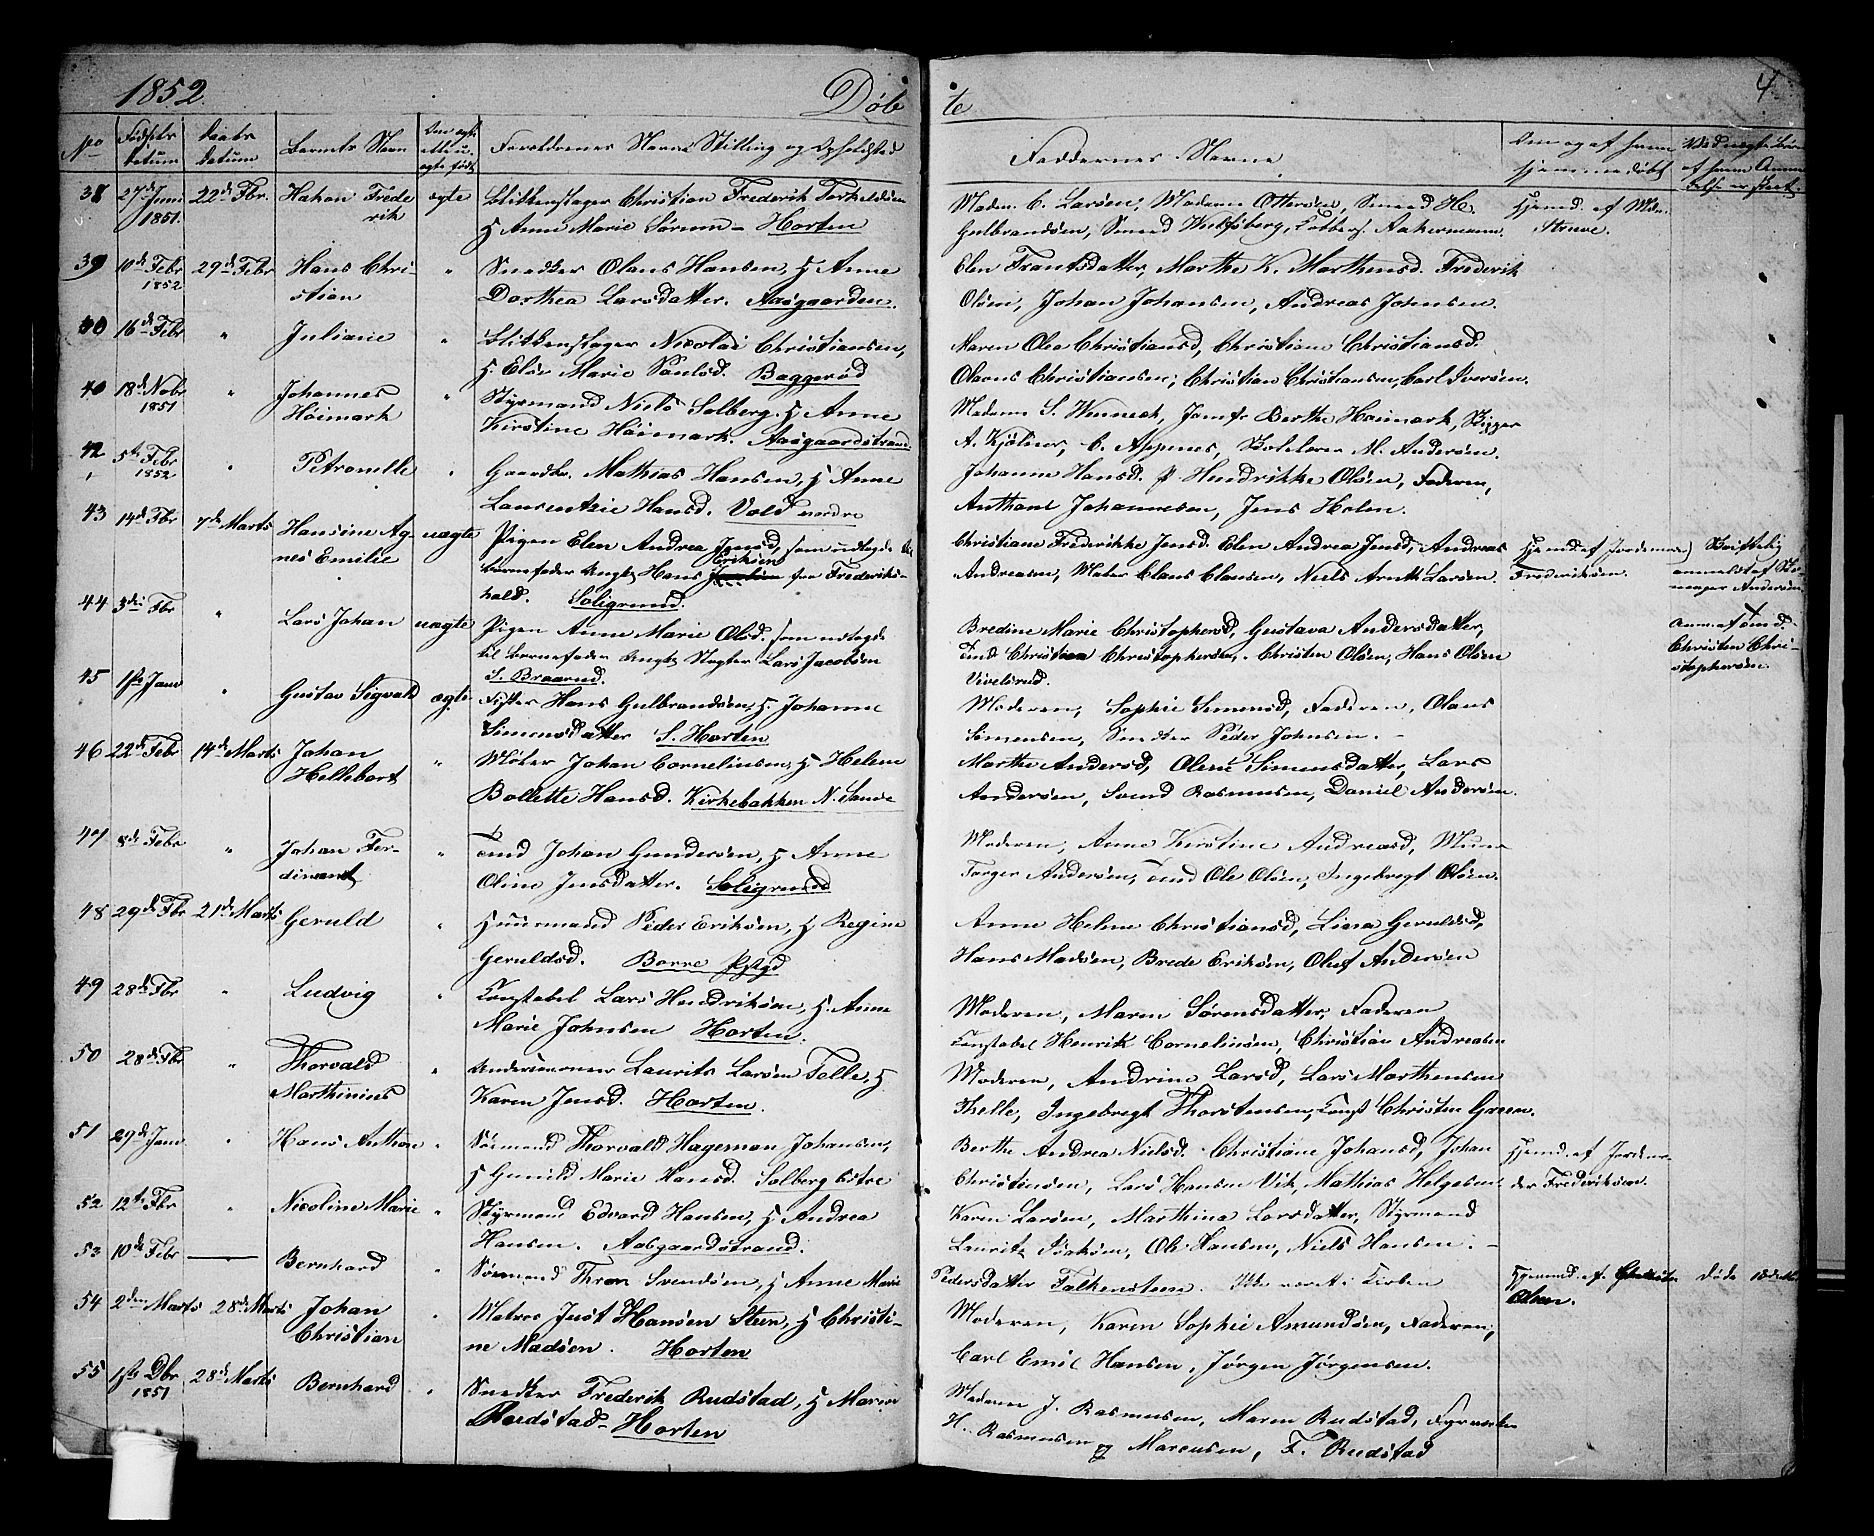 1852. Døbte 4
No Fødsels datum Daabs datum Barnets Navn Om ægte eller uægte født Forældrenes Navne Stilling og Opholdsted Faddernes Navne Om og af hvem hjemmedøbt
38 27de Juni 1851. 22de Fbr. Hakon Frederik ægte Christian Frederik Torkeldsen
& Anne Marie Sørum – Horten
Madm. C. Larsen, Madame Ottersen, Smed H.
Gulbrandsen, Smed
Hjemd. af Md. Struve.
39 10de Febr 1852 29de Febr Hans Christian " Snedker Olaus Hansen, & Anne
Dorthea Larsdatter. Aasgaarden.
Elen Frantsdatter, Marthe K. Marthinsd. Frederik
Olsen, Johan Johansen, Andreas Johnsen.
16de Febr " Juliane " Nicolai Christiansen,
& Marie Baggerød
Maren Olea Christiansd, Christiane Christiansd.
Christiansen, Christian Christiansen, Carl Iversen.
40 18de Nobr 1851 Johannes Høimark " Styrmand Niels Solberg, & Anne
Kirstine Høimark. Aasgaardstrand.
Madame S. Jomfr Berthe Høimark, Skipper
A. Kjølner, C. M. Andersen.
42 5te Febr 1852 " Petronille " Gaardbr. Mathias Hansen, & Anne
Laurentzie Hansd. Vold nordre
Johanne Hansd. Hendrikke Olsen, Faderen,
Anthon Johannesen, Jens Holen.
43 14de Fbr 7de Marts Hansine Agnes Emilie uægte Pigen Elen Andrea Jensd, som udlagde til
Barnefader Ungk Hans Eriksen fra Frederikshald. Soligrund.
Christiane Frederikke Jensd. Elen Andrea Jensd, Andreas
Andreasen, Claus Clausen, Niels Larsen.
Hjemd. af Jordemor Frederiksen.
Skriftelig anmeldt af Andersen
44 3die Fbr " Lars Johan uægte Pigen Anne Marie Olsd. som udlagde
til Barnefader Ungk Lars Jacobsen
S. Braarud.
Bredine Marie Christophersd, Gustava Andersdatter,
Christian Christophersen, Christen Olsen, Hans Olsen
Christen Christophersen.
45 1ste Jan " Gustav Sigvald ægte Fisker Hans Gulbrandsen, & Johanne
Simensdatter S. Horten
Moderen, Sophie Simensd, Faderen, Olaus
Simensen, Snedker Peder Johnsen. –
46 22de Febr 14de Marts Johan Hellebart " Møler Johan Cornelinsen, & Helene
Bollette Hansd. Kirkebakken N. Sande
Marthe Andersd, Olene Simensdatter, Lars
Andersen, Svend Rasmussen, Daniel Andersen.
47 8de Febr " Johan Ferdinant " Tmd Johan Gundersen, & Anne
Oline Jensdatter. Soligrund
Moderen, Anne Kirstine Andreasd,
Torger Andersen, Tmd Ole Olsen, Ingebregt Olsen.
48 29de Fbr 21de Marts Geruld " Huusmand Peder Eriksen, & Regine
Geruldsd. Borre Pstgd
Anne Helene Christiansd, Lina Geruldsd,
Hans Madsen, Brede Eriksen, Oluf Andersen
49 28de Fbr " Ludvig " Constabel Lars Hendriksen, & Anne
Marie Johnsen Horten.
Moderen, Maren Sørensdatter, Faderen
Constabel Henrik Cornelinsen, Christian Andreasen
50 28de Fbr " Thorvald Marthinius " Laurits Larsen Telle, &
Karen Jensd. Horten.
Moderen, Andrine Larsd, Lars Marthensen
Thelle, Ingebregt Thorstensen, Const Christen Green.
51 29de Jan " Hans Anthon " Sømand Thorvald Hageman Johansen,
& Gunild Marie Hansd. Solberg østre
Berthe Andrea Nielsd. Christiane Johansd, Johan
Christiansen, Lars Hansen Vik, Mathias Helgesen
Hjemd. af Jordemoder Frederiksen.
52 12te Fbr " Nicoline Marie " Styrmand Edvard Hansen, & Andrea
Hansen. Aasgaardstrand.
Karen Larsen, Marthina Larsdatter, Styrmand
Lauritz Isaksen, Ole Hansen, Niels Hansen. –
53 10de Febr — Bernhard " Sømand Thron Svendsen, & Anne Marie
Pedersdatter Falkensteen. Ikke været i Kirken
Hjemd. af Olsen.
døde
54 2den Marts 28de Marts Johan Christian " Matros Just Hansen Steen, & Christine Madsen. Horten
Moderen, Karen Sophie Amundsen, Faderen,
Carl Emil Hansen, Jørgen Jørgensen.
55 1ste Dbr 1851 28de Marts Bernhard " Snedker Frederik Rudstad, & Maren
Rudstad – Horten
Madame J. Rasmussen, Maren Rudstad,
H. Rasmussen & Marcusen, F. Rudstad